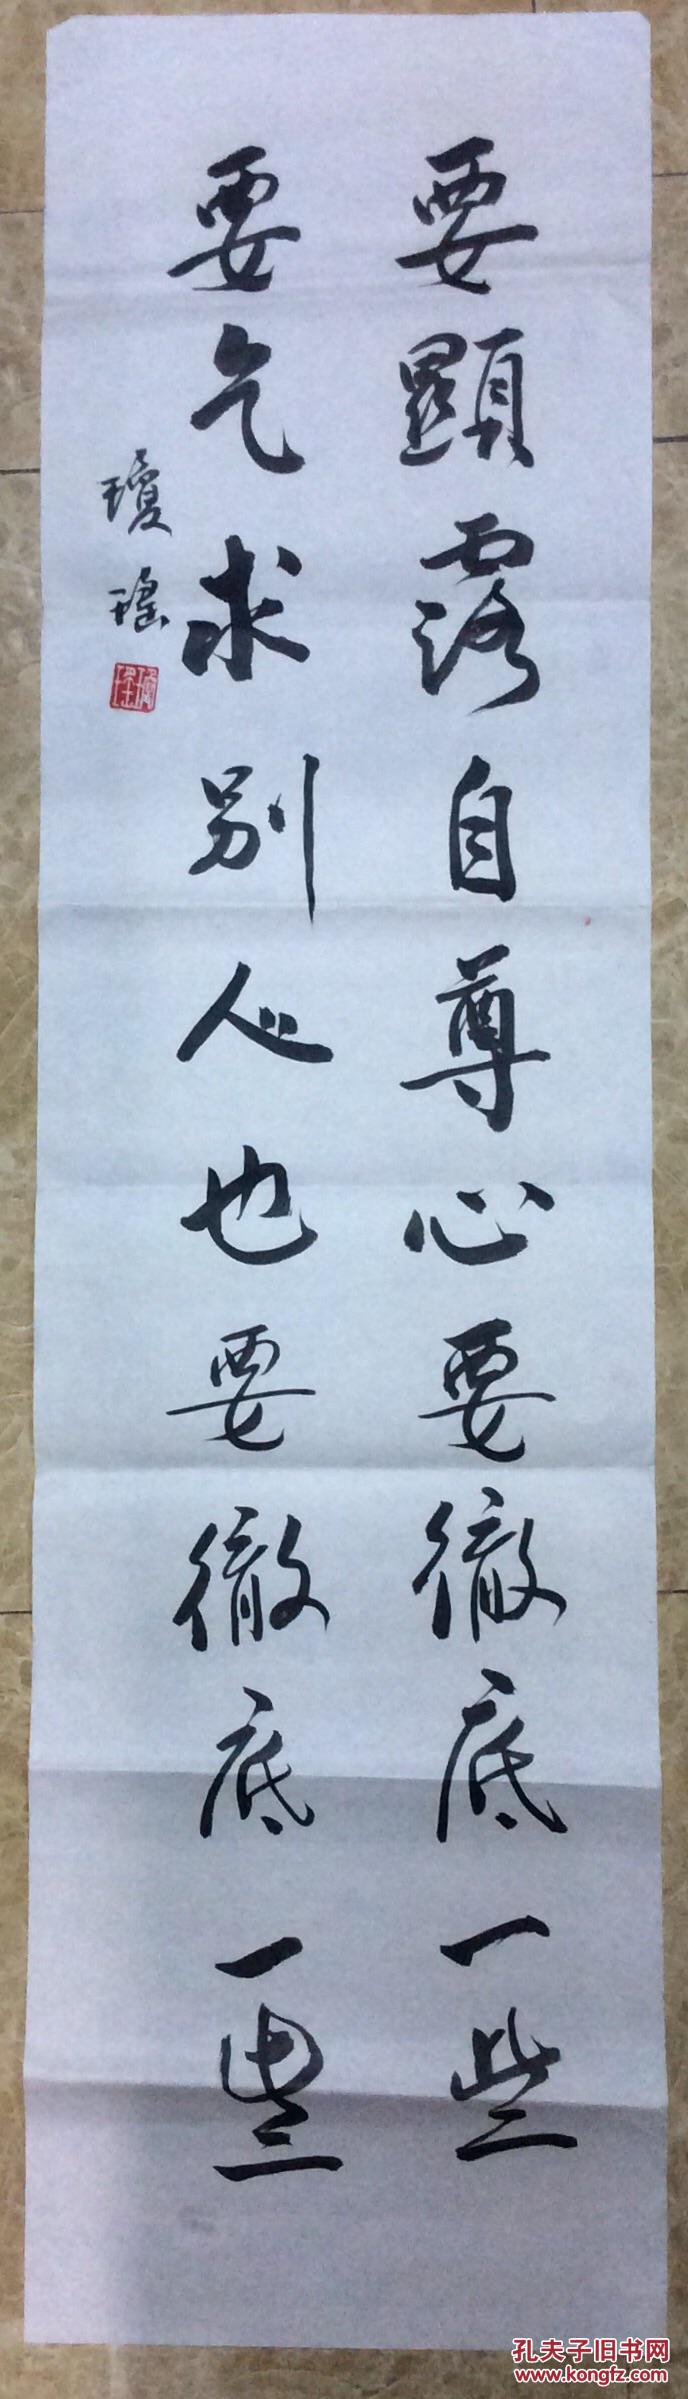 要顯露自尊心要徹底一些
要乞求别人也要徹底一些
瓊瑤
瓊瑤
孔夫子旧书网
www.kongfz.com